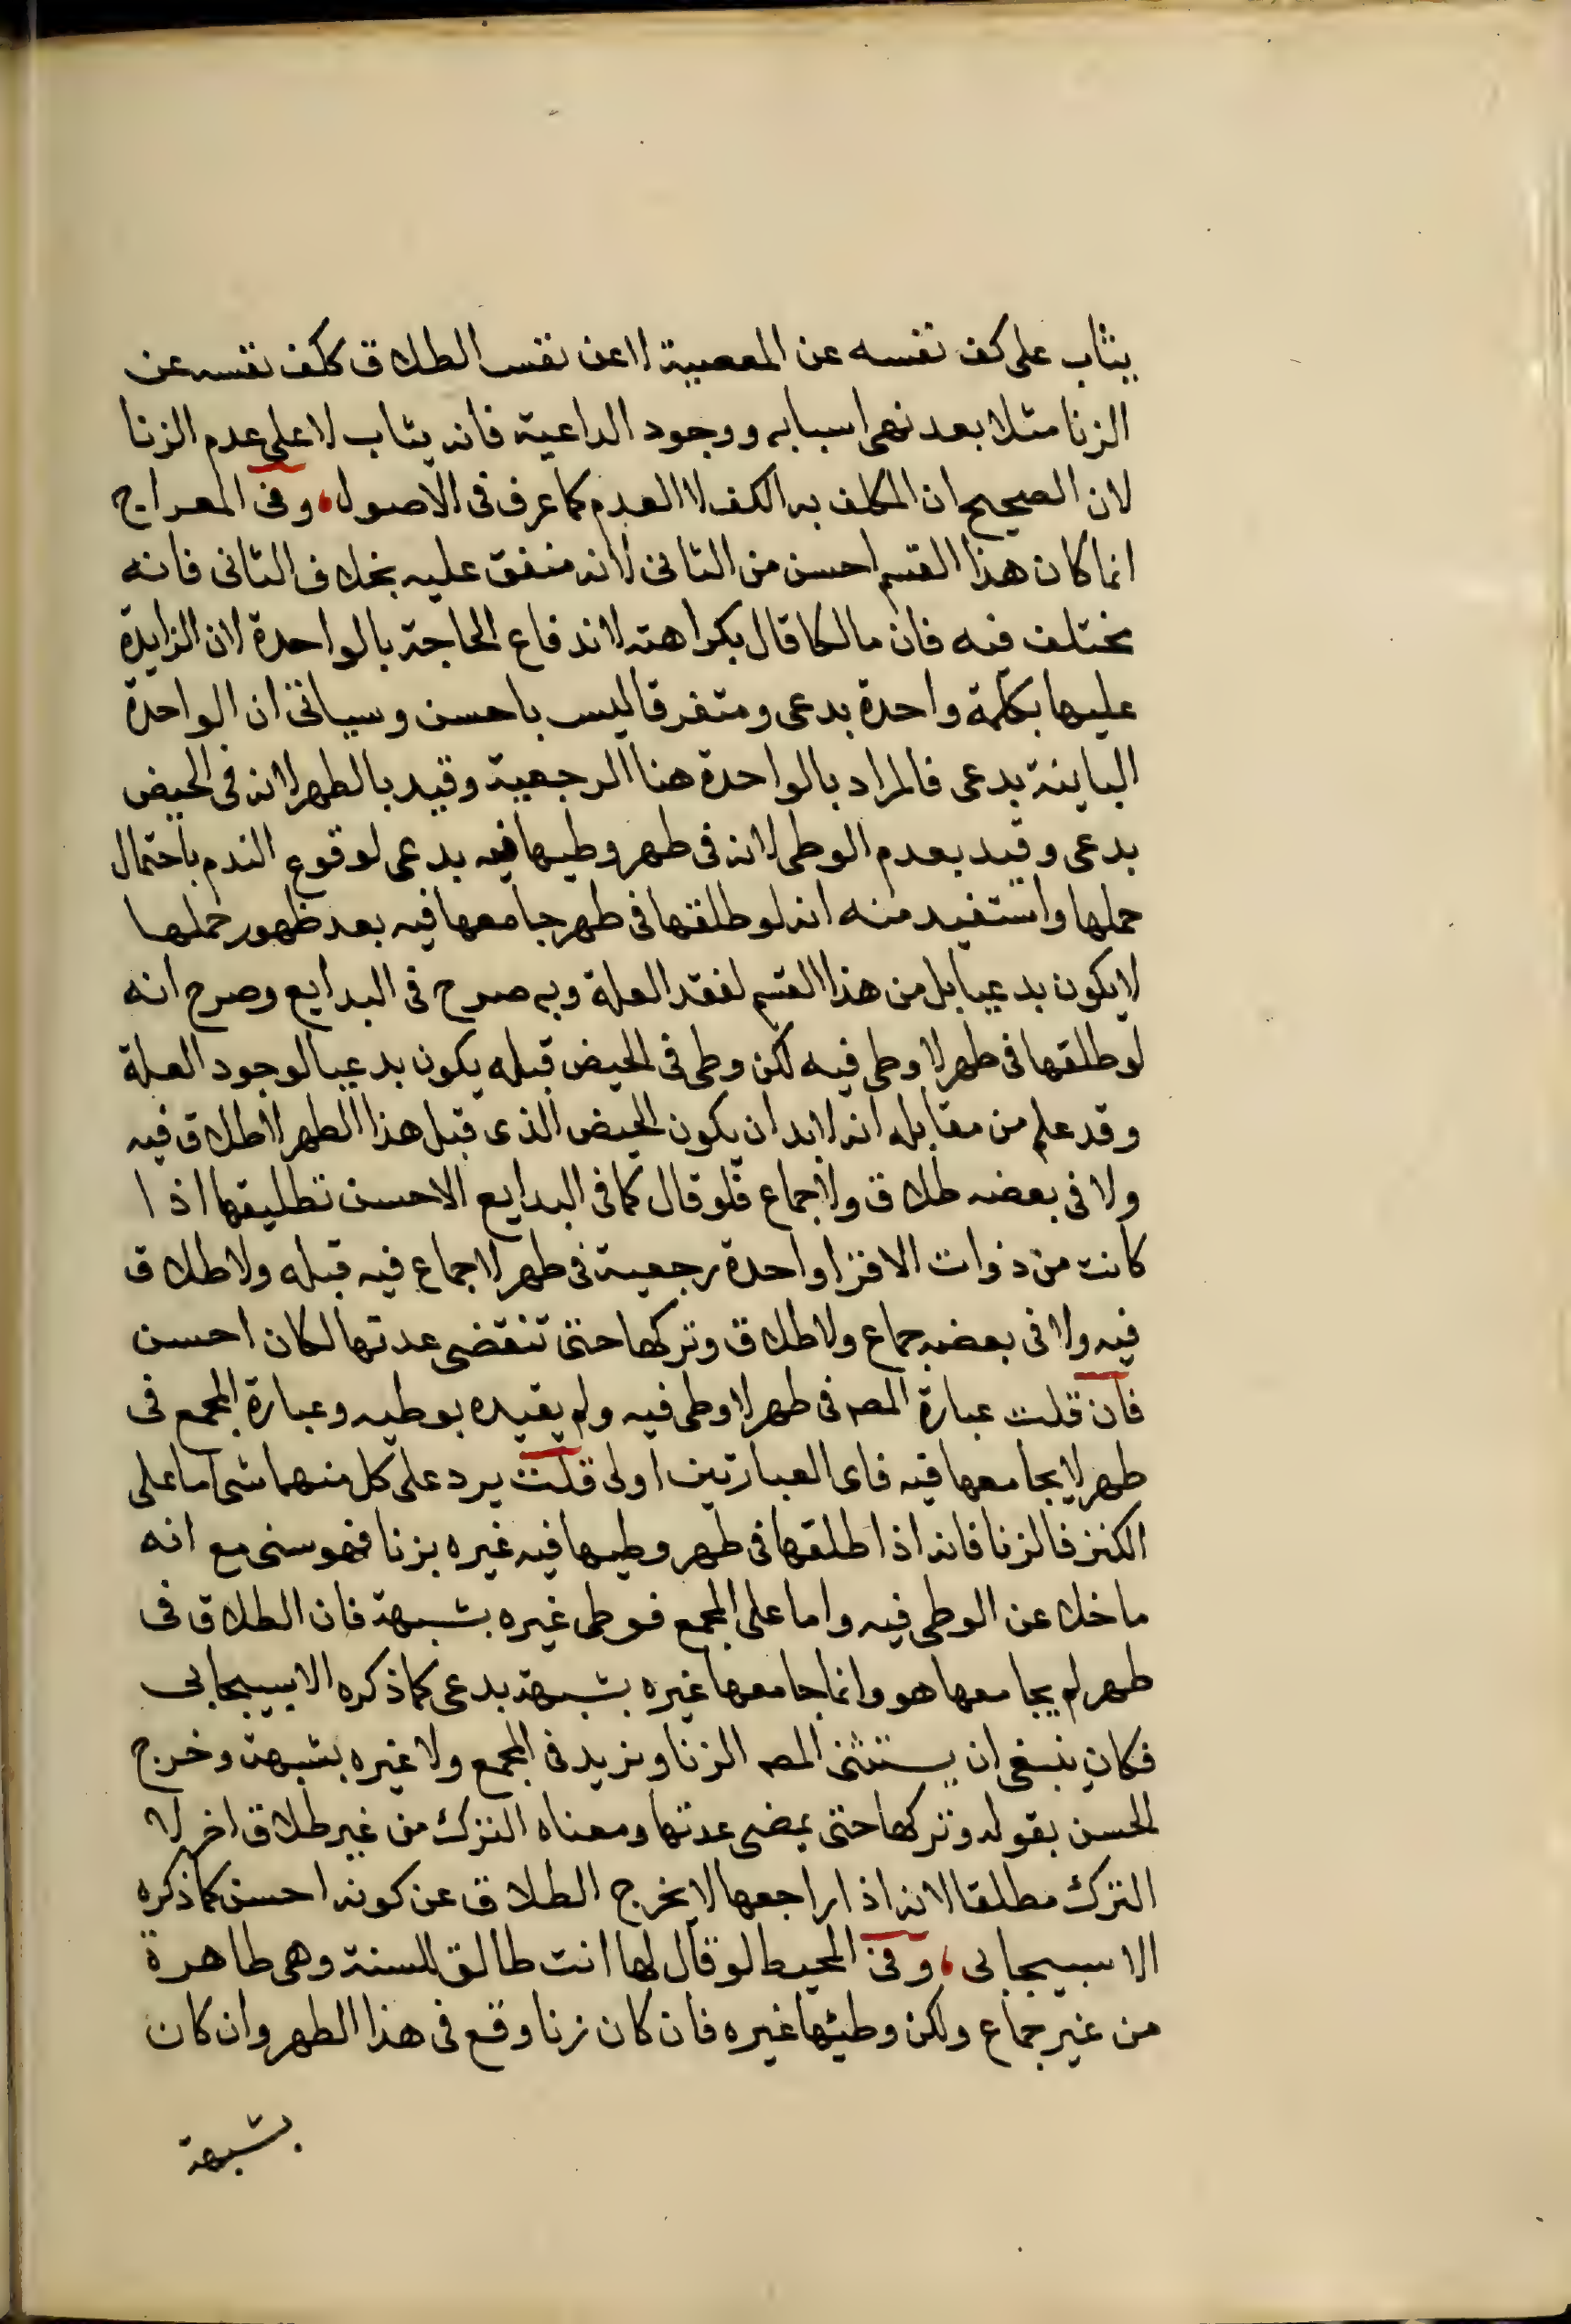 يثاب على كف نفسه عن المعصية لا عن نفس الطلاق ككف نفسه عن
الزنا مثلا بعد تهى اسبابه ووجود الداعية فانه يثاب لا على عدم الزنا
لان الصحيح ان المكلف به الكف لا العدم كما عرف فى الاصول، وفى المعراج
انما كان هذا القسم احسن من الثانى لانه متفق عليه بخلاف الثانى فانه
مختلف فيه فان مالكا قال بكراهته لاندفاع الحاجة بالواحدة لان الزايدة
عليها بكلمة واحدة بدعى ومتفرقا ليس باحسن وسياتى ان الواحدة
الباينة بدعى فالمراد بالواحدة هنا الرجعية وقيد بالطهر لانه فى الحيض
بدعى وقيد بعدم الوطى لانه فى طهر وطيها فيه بدعى لوقوع الندم باحتمال
حملها واستفيد منه انه لو طلقها فى طهر جامعها فيه بعد ظهور حملها
لا يكون بدعيا بل من هذا القسم لفقد العلة وبه صرح فى البدايع وصرح انه
لو طلقها فى طهر لا وطى فيه لكن وطى فى الحيض قبله يكون بدعيا لوجود العلة
وقد علم من مقابله انه لا بد ان يكون الحيض الذى قبل هذا الطهر لا طلاق فيه
ولا فى بعضه طلاق ولا جماع فلو قال كما فى البدايع الاحسن تطليقها اذا
كانت من ذوات الاقرا واحدة رجعية فى طهر لا جماع فيه قبله ولا طلاق
فيه ولا فى بعضه جماع ولا طلاق وتركها حتى تنقضى عدتها لكان احسن
فان قلت عبارة المصـ فى طهر لا وطى فيه ولم يقيده بوطيه وعبارة المجمع فى
طهر لا يجامعها فيه فاى العبارتين اولى قلت يرد على كل منهما شى اما على
الكنز فالزنا فانه اذا طلقها فى طهر وطيها فيه غيره بزنا فهو سنى مع انه
ما خلا عن الوطى فيه واما على المجمع فوطى غيره بشبهة فان الطلاق فى
طهر لم يجامعها هو وانما جامعها غيره بشبهة بدعى كما ذكره الاسبيجابى
فكان ينبغى ان يستثنى المصـ الزنا ويزيد فى المجمع ولا غيره بشبهة وخرج
الحسن بقوله وتركها حتى يمضى عدتها ومعناه الترك من غير طلاق اخر لا
الترك مطلقا لانه اذا راجعها لا يخرج الطلاق عن كونه احسن كما ذكره
الاسبيجابى، وفى المحيط لو قال لها انت طالق للسنة وهى طاهرة
من غير جماع ولكن وطئها غيره فان كان زنا وقع فى هذا الطهر وان كان
بشبهة